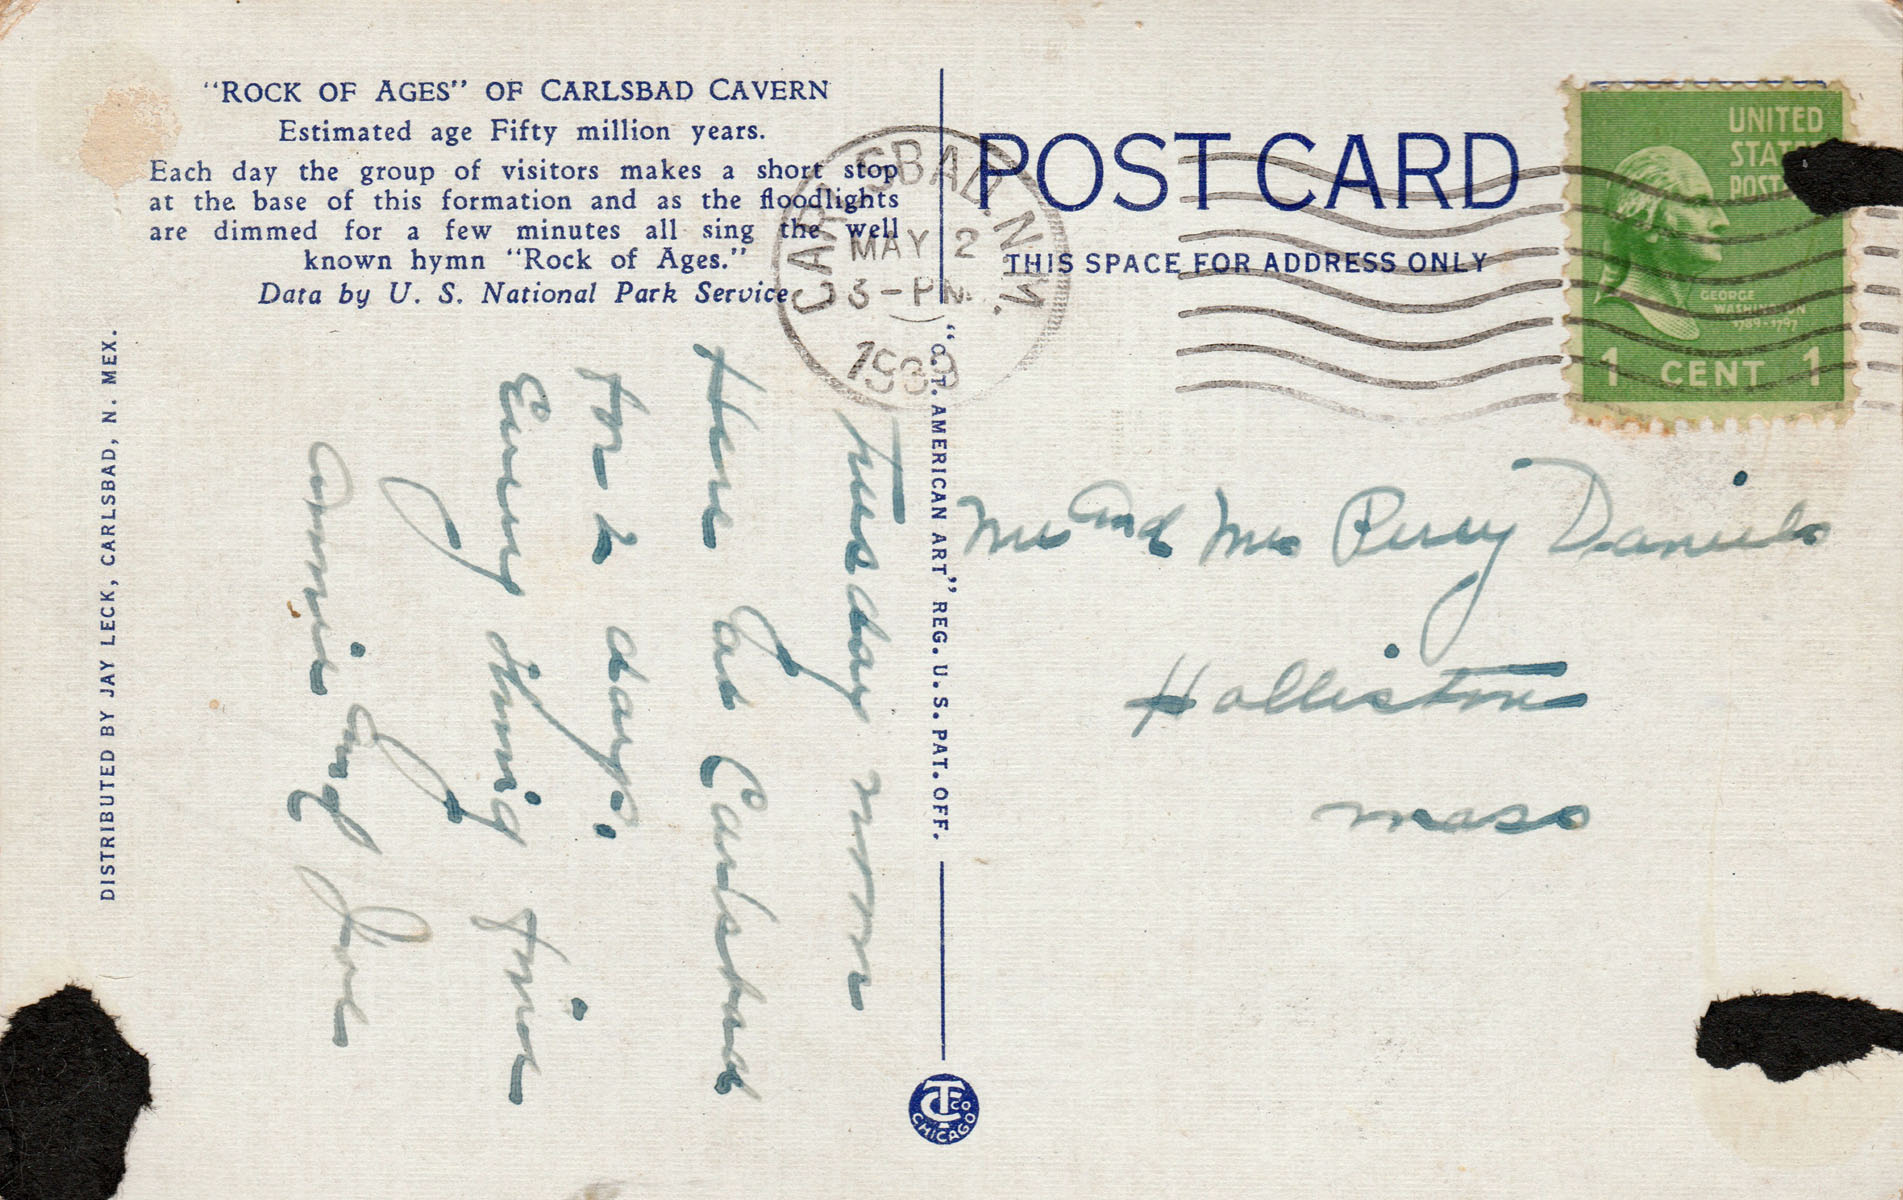 "ROCK OF AGES" OF CARLSBAD CAVERN
Estimated age Fifty million years.
Each day the group of visitors makes a short stop
at the base of this formation and as the floodlights
are dimmed for a few minutes all sing the well
known hymn "Rock of Ages."
Data by U. S. National Park Service
DISTRIBUTED BY JAY LECK, CARLSBAD, N. MEX.
Tuesday noon
Here at Carlsbad
for 2 days.
Every thing fine
Annie and Joe
"C.T. AMERICAN ART" REG. U. S. PAT. OFF.
CTCO
CHICAGO
CARLSBAD. N.M.
MAY 2
3-PM
1939
POST CARD
THIS SPACE FOR ADDRESS ONLY
UNITED
STATES
POST
GEORGE
WASHINGTON
1789-1797
1 CENT 1
Mr and Mrs Percy Daniels
Holliston
Mass